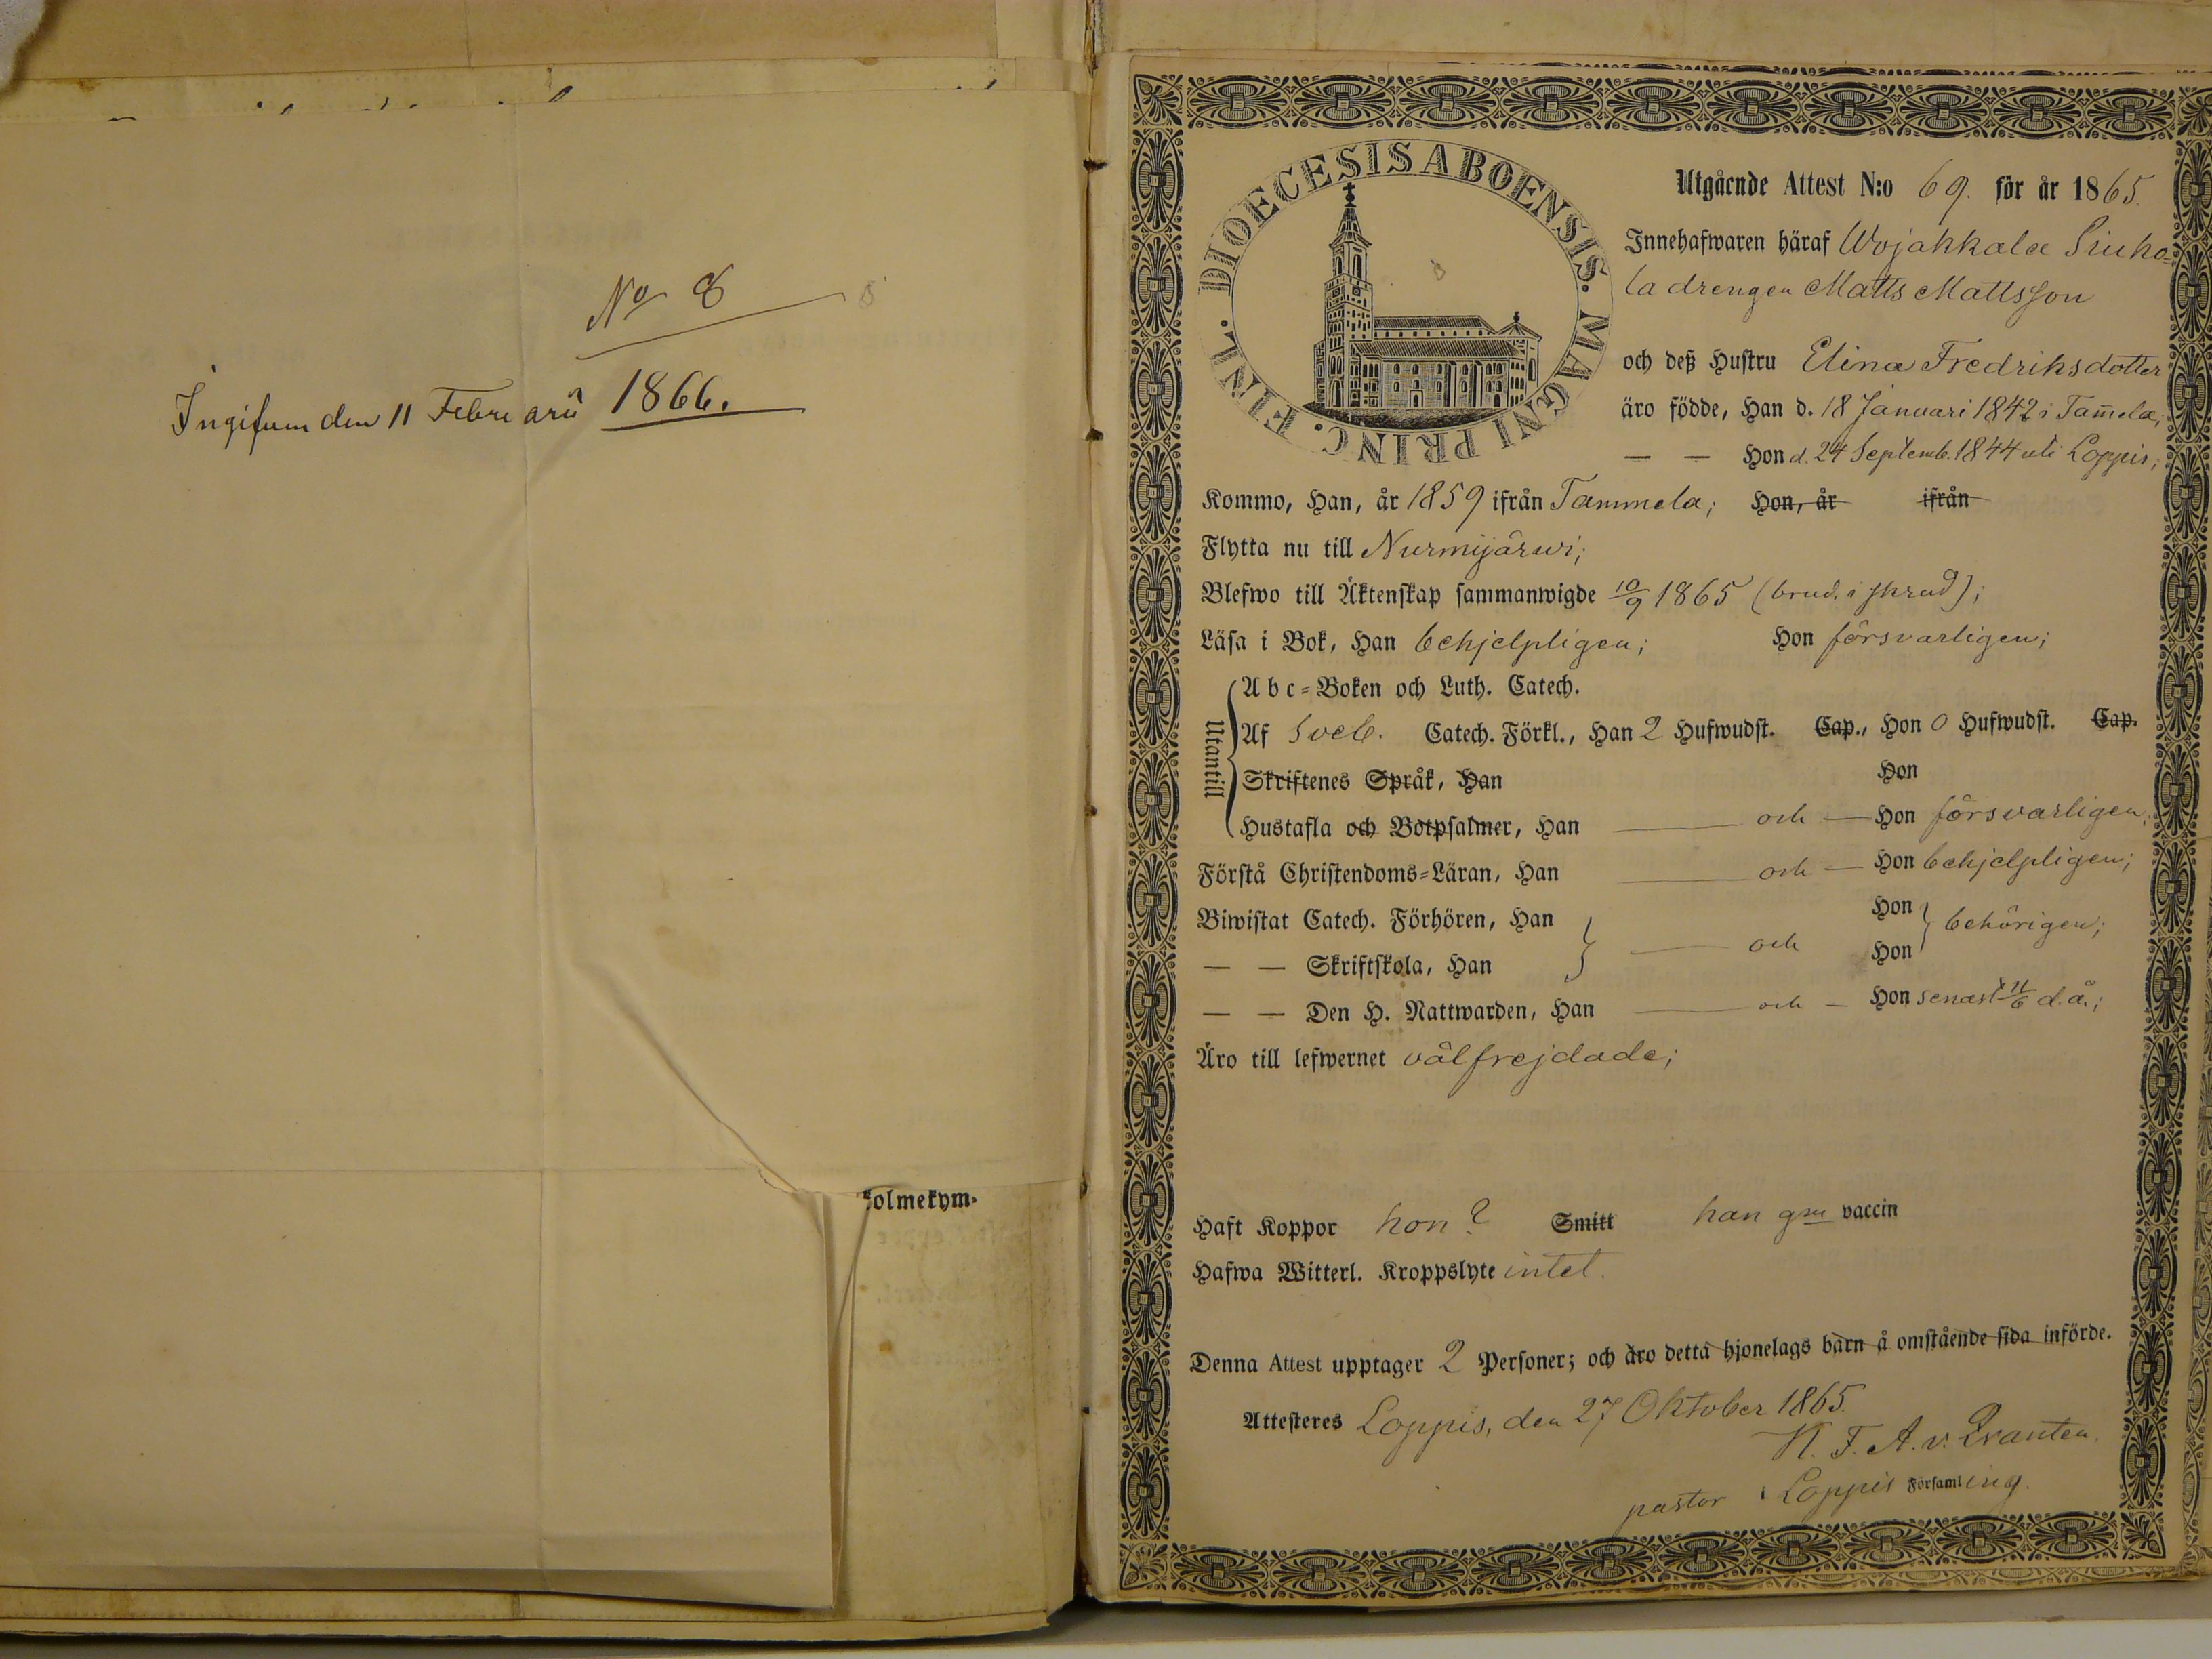 No 8
Ingifven den 11 Februarii 1866.
kolmekym-
DIOECESIS ABOENSIS. MAGNI PRINC. FINL.
Utgående Attest N:o 69. för år 1865.
Innehafwaren häraf Wojakkala Siuko-
la drengen Matts Mattsson
och deß Hustru Elina Fredriksdotter
äro födde, Han d. 18 Januari 1842 i Tam̄ela;
— — Hon d. 24 Septemb. 1844 uti Loppis;
Kommo, Han, år 1859 ifrån Tammela; Hon, år ifrån
Flytta nu till Nurmijärwi;
Blefwo till Äktenskap sammanwigde 10/9 1865 (brud. i skrud);
Läsa i Bok, Han behjelpligen; Hon försvarligen;
Utantill
Abc-Boken och Luth. Catech.
Af Sveb. Catech. Förkl., Han 2 Hufwudst. Cap., Hon 0 Hufwudst. Cap.
Skriftenes Språk, Han Hon
Hustafla och Botpsalmer, Han — och — Hon försvarligen;
Förstå Christendoms-Läran, Han — och — Hon behjelpligen;
Biwistat Catech. Förhören, Han Hon
— och behörigen;
— — Skriftskola, Han Hon
— — Den H. Nattwarden, Han — och — Hon senast 11/6 d. å.;
Äro till lefwernet välfrejdade;
Haft Koppor hon? Smitt han gm vaccin
Hafwa Witterl. Kroppslyte intet.
Denna Attest upptager 2 Personer; och äro detta hjonelags barn å omstående sida införde.
Attesteres Loppis, den 27 Oktober 1865.
N. F. A. v. Qvanten.
pastor i Loppis Församling.